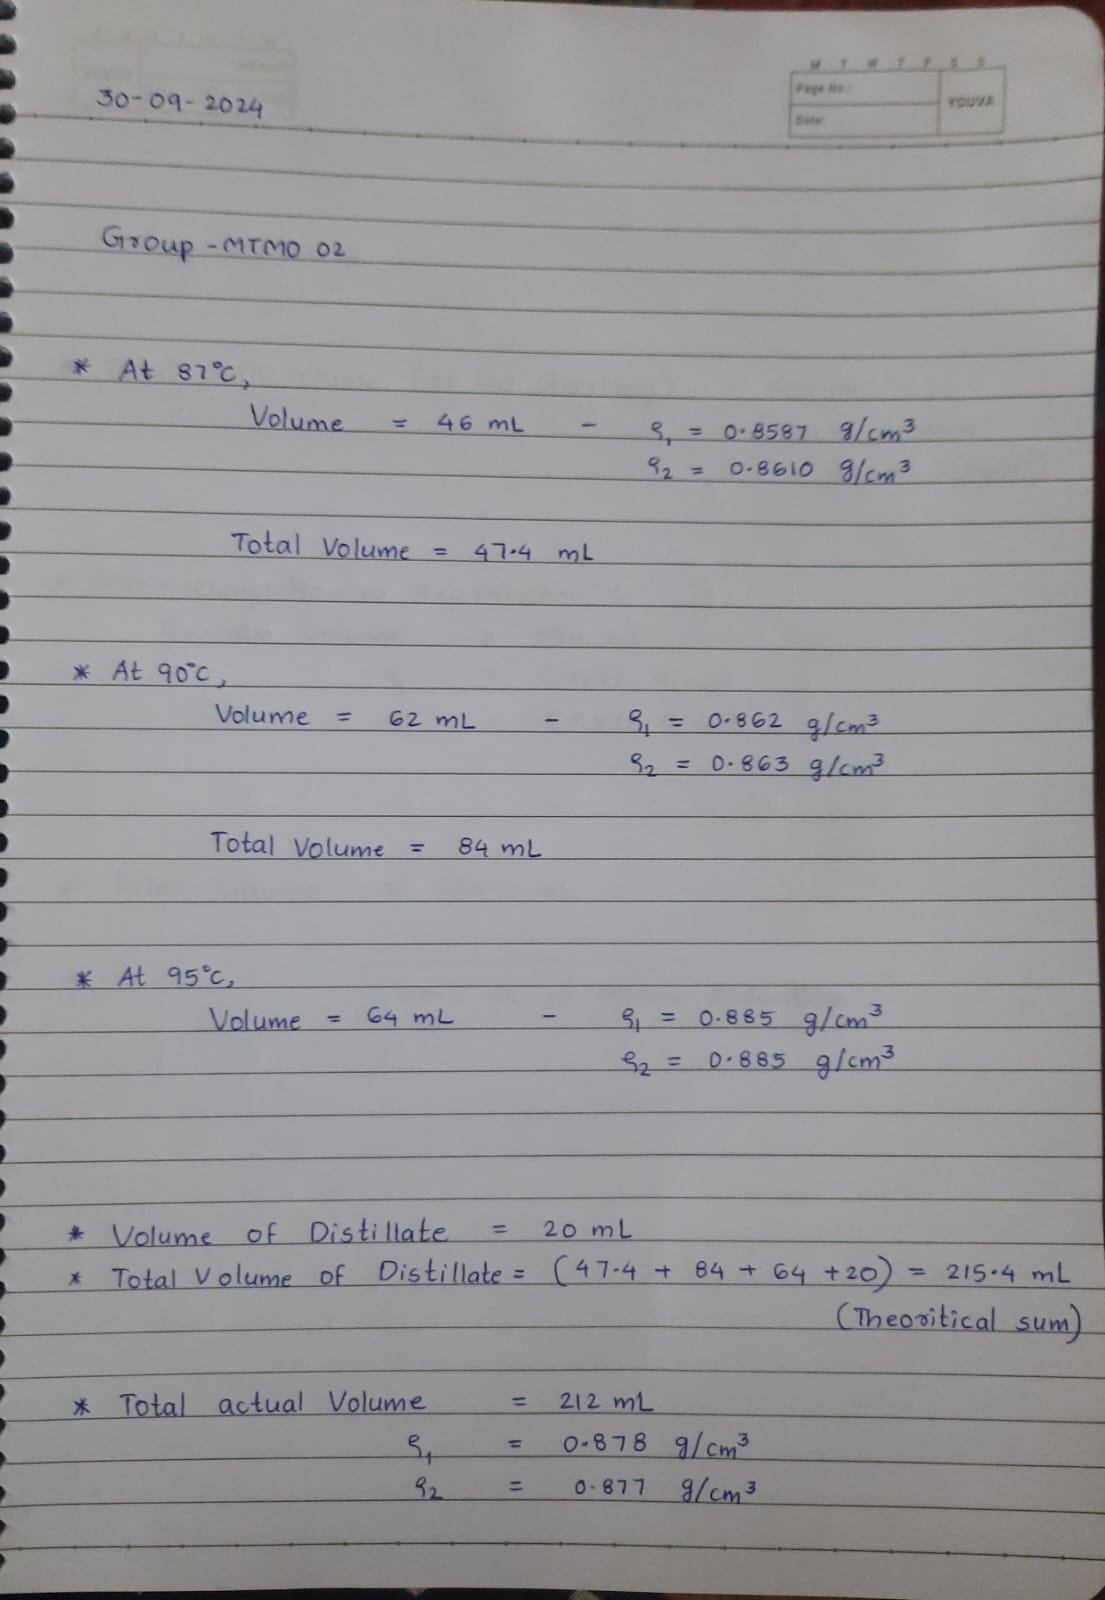 M T W T F S S
Page No.:
YOUVA
Date:
30-09-2024
Group - MTMO 02
* At 87°C,
Volume = 46 mL - ρ1 = 0.8587 g/cm³
ρ2 = 0.8610 g/cm³
Total Volume = 47.4 mL
* At 90°C,
Volume = 62 mL - ρ1 = 0.862 g/cm³
ρ2 = 0.863 g/cm³
Total Volume = 84 mL
* At 95°C,
Volume = 64 mL - ρ1 = 0.885 g/cm³
ρ2 = 0.885 g/cm³
* Volume of Distillate = 20 mL
* Total Volume of Distillate = (47.4 + 84 + 64 + 20) = 215.4 mL
(Theoritical sum)
* Total actual Volume = 212 mL
ρ1 = 0.878 g/cm³
ρ2 = 0.877 g/cm³